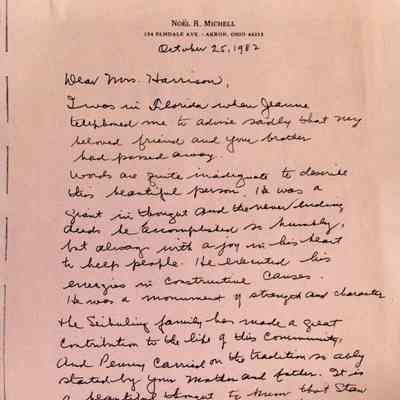 NOËL R. MICHELL
154 ELMDALE AVE. - AKRON, OHIO 44313
October 25, 1982
Dear Mrs. Harrison,
I was in Florida when Jeanne
telephoned me to advise sadly that my
beloved friend and your brother
had passed away.
Words are quite inadequate to describe
this beautiful person. He was a
giant in thought and the never ending
deeds he accomplished so humbly,
but always with a joy in his heart
to help people. He executed his
energies in constructive causes.
He was a monument of strength and character
The Seiberling family has made a great
contribution to the life of this community,
And Penny carried on the tradition so ably
started by your Mother and father. It is
a beautiful thought to me that Stan